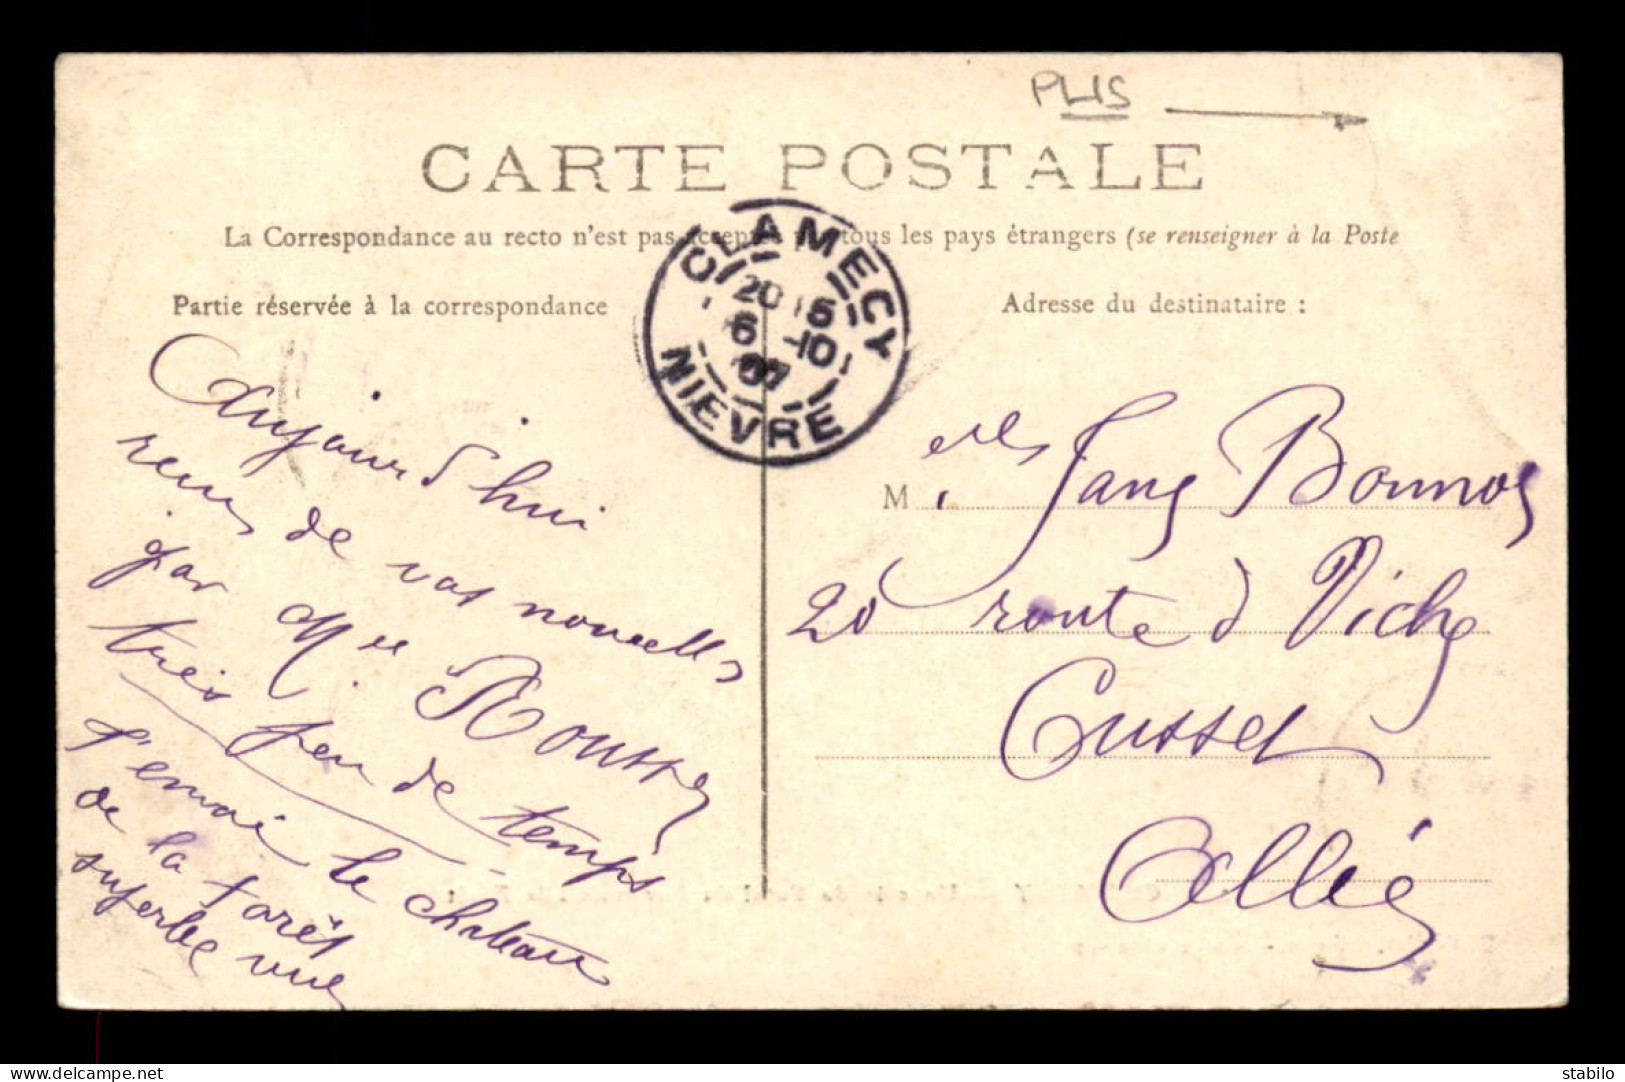 PLIS
CARTE POSTALE
La Correspondance au recto n'est pas acceptée par tous les pays étrangers (se renseigner à la Poste
Partie réservée à la correspondance
Adresse du destinataire :
CLAMECY
20 15
6 -10
07
NIEVRE
Aujourd'hui
reçu de vos nouvelles
par Mlle
très peu de temps
j'envoi le château
de la forêt
superbe vue
M
20 route d Vichy
Cusset
Allier
www.delcampe.net
stabilo